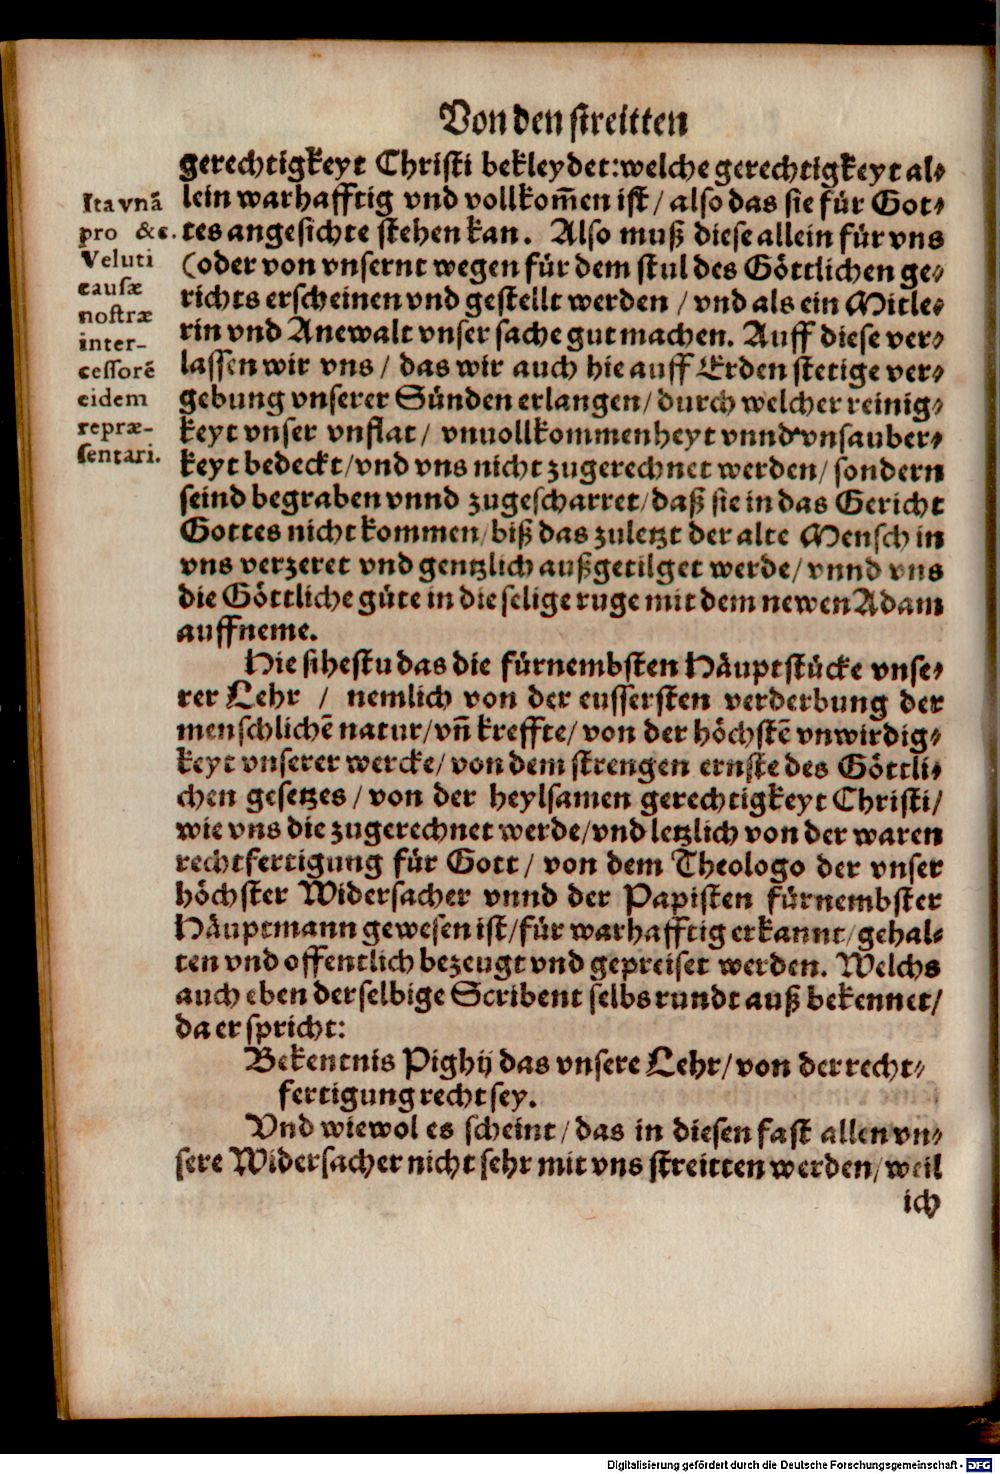 Von den streitten
gerechtigkeyt Christi bekleydet: welche gerechtigkeyt al⸗
lein warhafftig vnd vollkom̄en ist / also das sie für Got⸗
tes angesichte stehen kan. Also muß diese allein für vns
(oder von vnsernt wegen für dem stul des Göttlichen ge⸗
richts erscheinen vnd gestellt werden / vnd als ein Mitle⸗
rin vnd Anewalt vnser sache gut machen. Auff diese ver⸗
lassen wir vns / das wir auch hie auff Erden stetige ver⸗
gebung vnserer Sünden erlangen / durch welcher reinig⸗
keyt vnser vnflat / vnuollkommenheyt vnnd vnsauber⸗
keyt bedeckt / vnd vns nicht zugerechnet werden / sondern
seind begraben vnnd zugescharret / daß sie in das Gericht
Gottes nicht kommen / biß das zuletzt der alte Mensch in
vns verzeret vnd gentzlich außgetilget werde / vnnd vns
die Göttliche güte in die selige ruge mit dem newen Adam
auffneme.
Ita vnā
pro &c.
Veluti
causæ
nostræ
inter-
cessorē
eidem
repræ-
sentari.
Hie sihestu das die fürnembsten Häuptstücke vnse⸗
rer Lehr / nemlich von der eussersten verderbung der
menschlichē natur / vn̄ kreffte / von der höchstē vnwirdig⸗
keyt vnserer wercke / von dem strengen ernste des Göttli⸗
chen gesetzes / von der heylsamen gerechtigkeyt Christi /
wie vns die zugerechnet werde / vnd letzlich von der waren
rechtfertigung für Gott / von dem Theologo der vnser
höchster Widersacher vnnd der Papisten fürnembster
Häuptmann gewesen ist / für warhafftig erkannt / gehal⸗
ten vnd offentlich bezeugt vnd gepreiset werden. Welchs
auch eben derselbige Scribent selbs rundt auß bekennet /
da er spricht:
Bekentnis Pighij das vnsere Lehr / von der recht⸗
fertigung recht sey.
Vnd wiewol es scheint / das in diesen fast allen vn⸗
sere Widersacher nicht sehr mit vns streitten werden / weil
ich
Digitalisierung gefördert durch die Deutsche Forschungsgemeinschaft - DFG